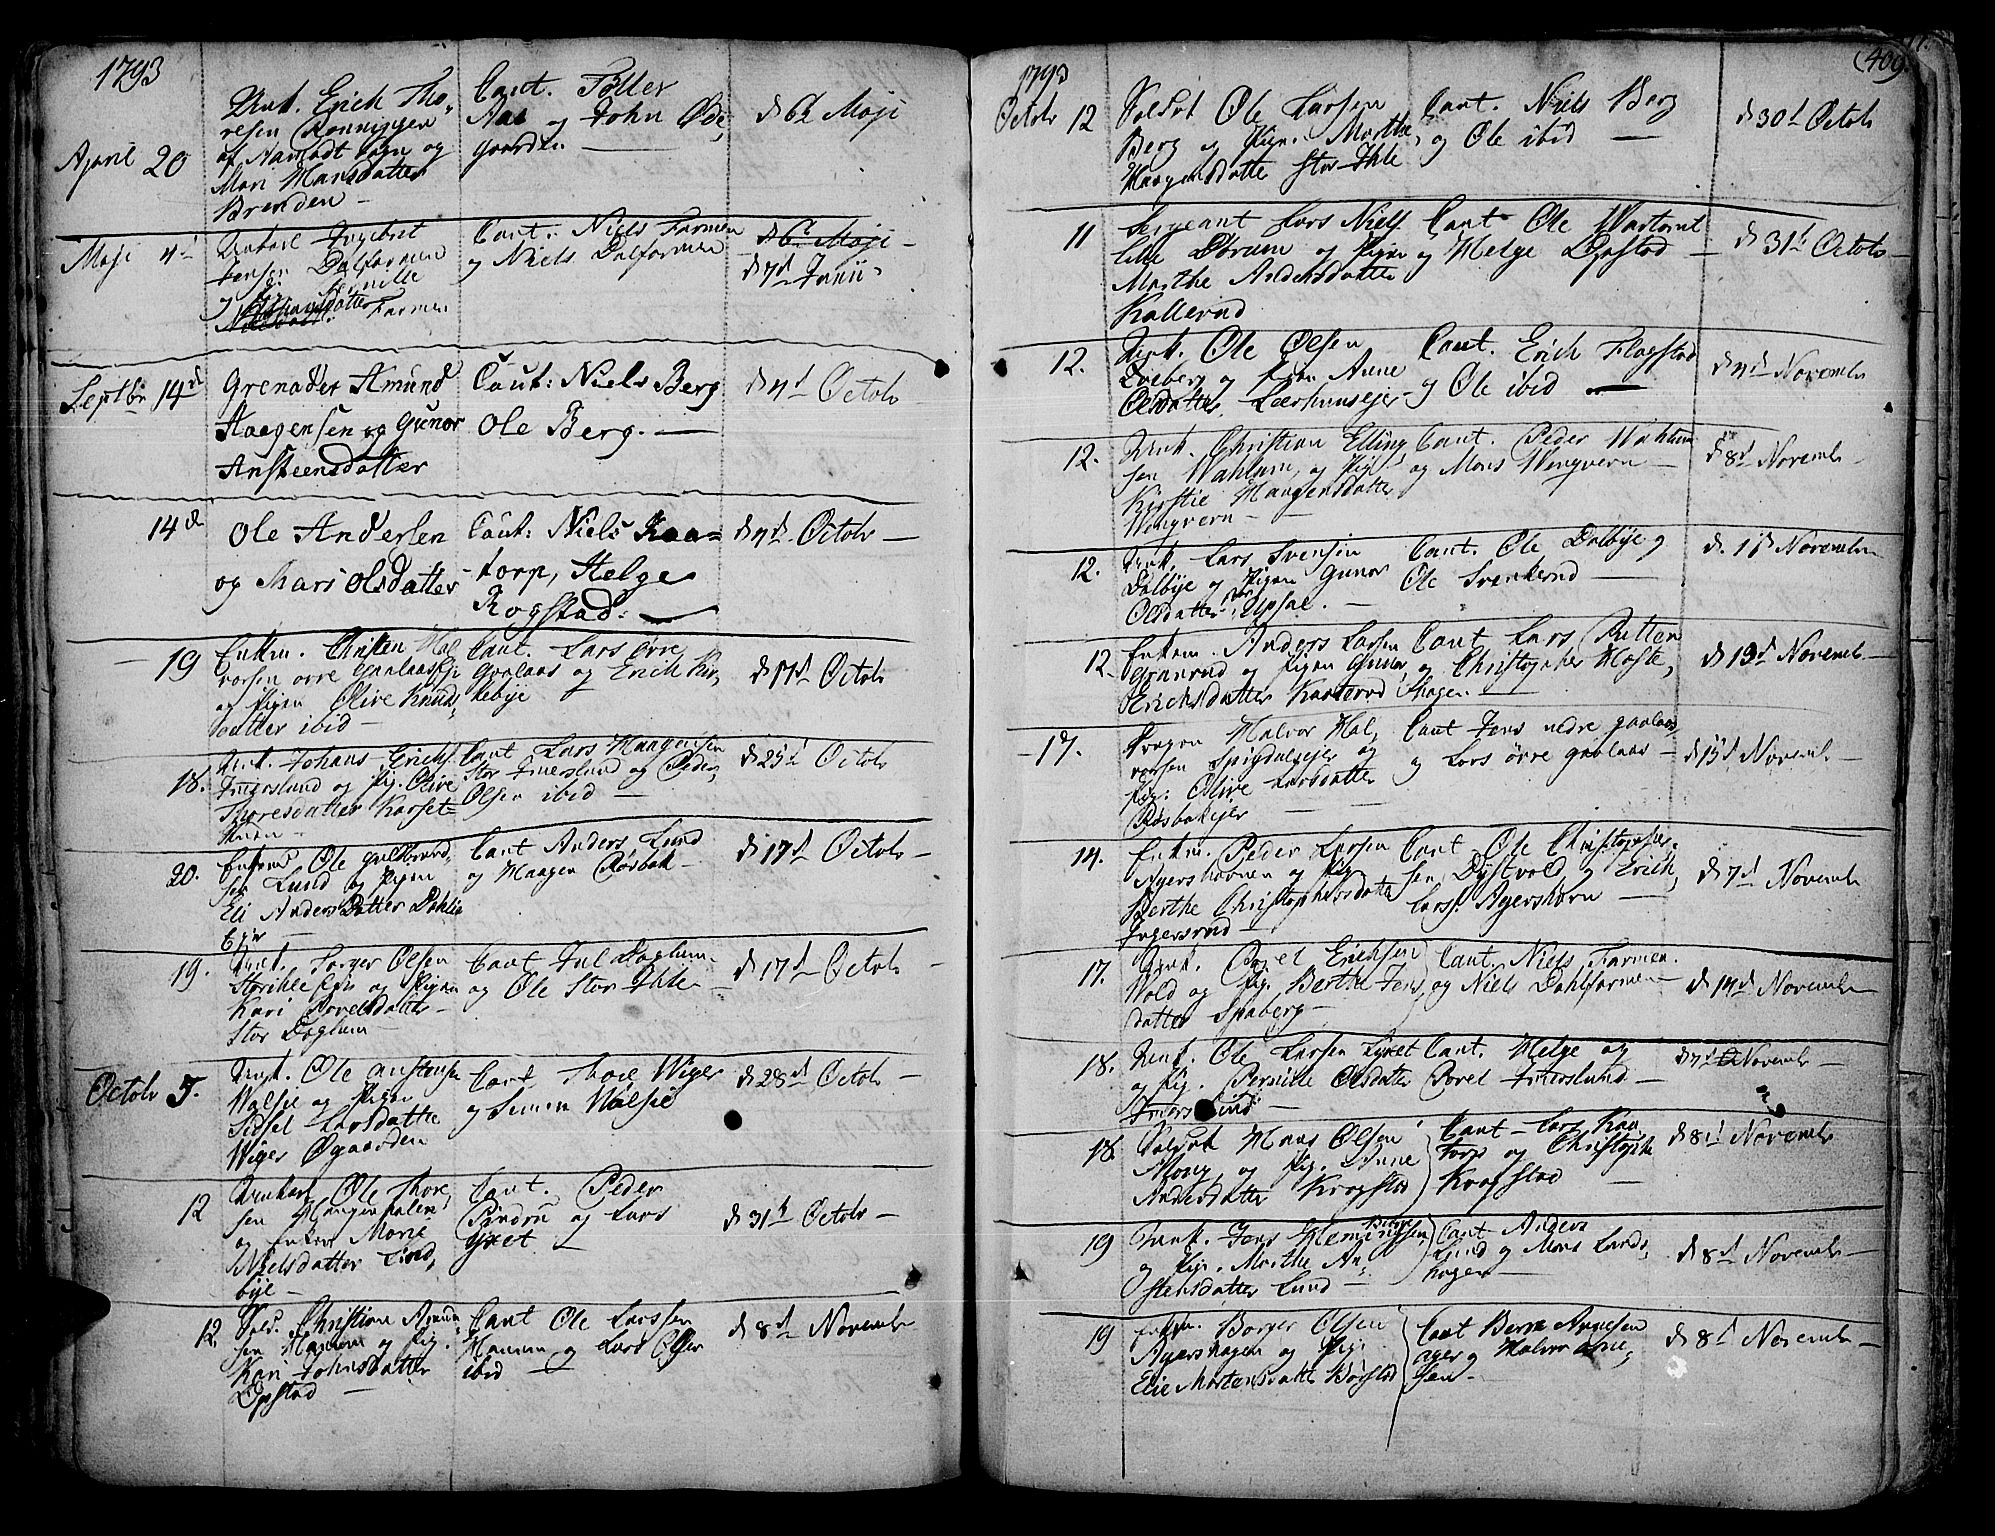 1793
April 20
Unk. Erich Tho-
resen Rønniggen
af Namsdt sogn og
Mari Hansdatter
Brenden
Caut. Toller
Aas og John Øde,
Gaarden
d 6te Maji
Maji 4d
Unkarl Ingebret
Jensen Dalfarmen
og Pernille
Nielsdatter Farmen
Caut: Niels Farmen
og Niels Dalfarmen
d 6t Maji
d 7d Junii
Septbr 14d
Grenader Amund
Haagensen og Gunor
Ansteensdatter
Caut: Niels Berg
Ole Berg.
d 4d Octobr
14d
Ole Andersen
og Mari Olsdatter
Caut: Niels Kaa=
torp, Helge
Rogstad:
d 4d Octobr
19
Enkm. Christen Hal
vorsen øvre Gaalaas
og Pigen Olive Knuds,
datter ibid
Caut. Lars øvre
Gaalaas og Erich Kir,
kebye
d 17d Octobr
18.
Unk. Johans Erichs
Imerslund og Pig. Olive
Thoresdatter Karset
Caut Lars Haagensen
Stor Imerslund og Peder
Olsen ibid
d 25d Octobr
20.
Enkmd Ole Guldbrand,
sen Lund og Pigen
Eli Anders Datter Dahlie
Ejer
Caut Anders Lund
og Haagen Rosbak
d 17d Octobr
19.
Unk. Torger Olsen
Storihle Ejer og Pigen
Kari Povelsdatter
Stor Doglum
Caut Jul Doglum
og Ole Stor Ihle
d 17d Octobr
Octobr 5.
Unk. Ole Anstensen
Walsie og Pigen
Sidsel Larsdatter
Wiger Øgaarden
Caut Thore Wiger
og Simen Walsie
d 28d Octobr
12
Unkarl Ole Thore,
sen
og Enken Marie
Nielsdatter Lind,
bye
Caut. Peder
Sindru og Lars
Lyxet
d 31d Octobr
12
Sold. Christian Amun
sen Hamum og Pig.
Kari Johnsdatter
Opstad
Caut Ole Larssen
Hamum og Lars Ejer
ibid
d 8d Novembr
1793
(409
Octobr 12
Soldat Ole Larsen
Berg og Pigen Marthe
Haagensdatter Stor-Ihle
Caut. Niels Berg
og Ole ibid
d 30d Octobr
11
Sergeant Lars Niels
lille Dørum og Pigen
Marthe Andersdatter
Kallerud
Caut Ole
og Helge Opstad
d 31d Octobr
12.
Unk. Ole Olsen
Evebærg og Pigen Anne
Olsdatter Leerhuusejer
Caut. Erich Flagstad
og Ole ibid
d 4d Novembr
12.
Unk. Christian Elling
sen Wahlum og Pig.
Kirstie Haagensdatter
Wengvern
Caut. Peder Wahlum
og Mons Wengvern
d 8d Novembr
12.
Unk. Lars Svensen
Dalbye og Pigen Gunor
Olsdatter Stor Upsal.
Caut. Ole Dalbye og
Ole Svenkerud
d. 1d Novembr
12.
Enkm. Anders Larsen
Granrud og Pigen Gunor
Erichsdatter Kaaterud
Caut Lars Putten
og Christopher Haste,
Shagen
d 19d Novembr
17.
Dragon Halvor Hal,
vorsen Spigdalsejer og
Pig: Olive Larsdatter
Rosbakejer
Caut Jens nedre Gaalaas
og Lars øvre Gaalaas
d 15d Novembr
14.
Enkm. Peder Larsen
Agershovnen og Pig.
Berthe Christophersdatter
Ingersrud
Caut Ole Christopher,
sen Dystvold og Erich
Lars. Agershovn
d 7d Novembr
17.
Unk. Povel Erichsen
Wold og Pig. Berthe Jens
datter Spaberg
Caut. Niels Farmen.
og Niels Dahlfarmen
d 14d Novembr
18.
Unk. Ole Larsen Lyxet
og Pig. Pernille Olsdatter
Imerslund
Caut. Helge og
Povel Imerslund
d 7d Novembr
18.
Soldat Hans Olsen
Mony og Pig. Anne
Andersdatter Krogstad
Caut Lars Kaa
torp og Christopher
Krogstad
d 8d Novembr
19
Unk. Jens Hemingsen
og Pig. Marthe An,
stensdatter Lund
Caut Anders
Lund og Mons Lunds,
hagen
d 8d Novembr
19
Enkm. Borger Olsen
Agershagen og Pig.
Elie Mortensdatter Børstad
Caut Bern Arnesen
ager og Halvor Arne,
sen
d 8d Novembr